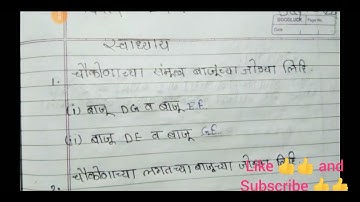 स्वाध्याय
1. चौकोनाच्या संमुख बाजूंच्या जोड्या लिहि.
(i) बाजू DG व बाजू EF
(ii) बाजू DE व बाजू GF
2. चौकोनाच्या लगतच्या बाजूंच्या जोड्या लिहि
Like 👍👍 and
Subscribe 👍👍